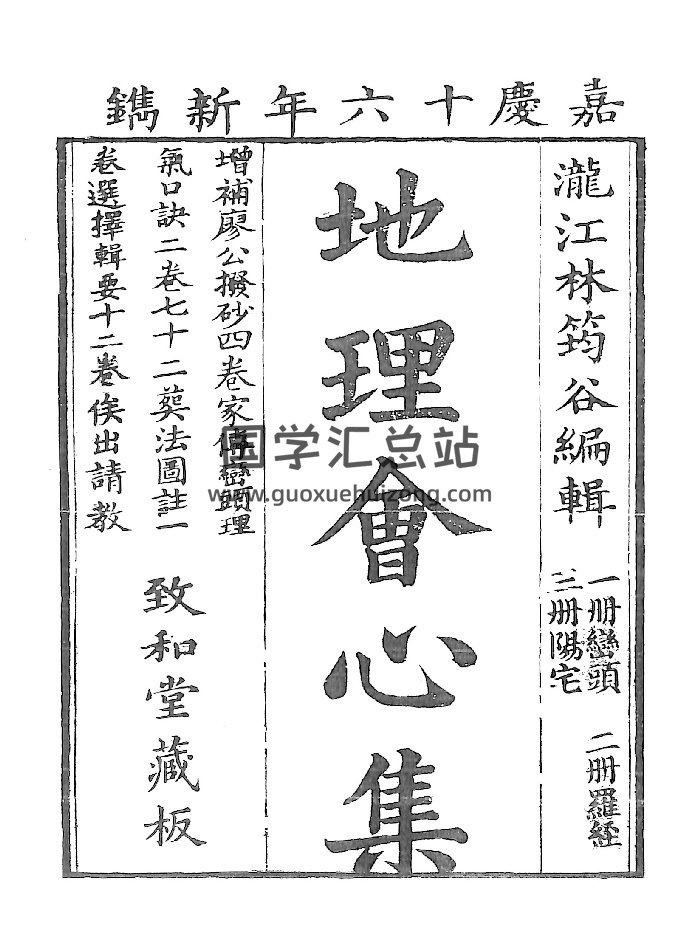 嘉慶十六年新鐫
瀧江林筠谷編輯
一册巒頭 二册羅經
三册陽宅
地理會心集
增補廖公撥砂四卷家傳巒頭理
氣口訣二卷七十二葬法圖註一
卷選擇輯要十二卷俟出請教
致和堂藏板
国学汇总站
www.guoxuehuizong.com